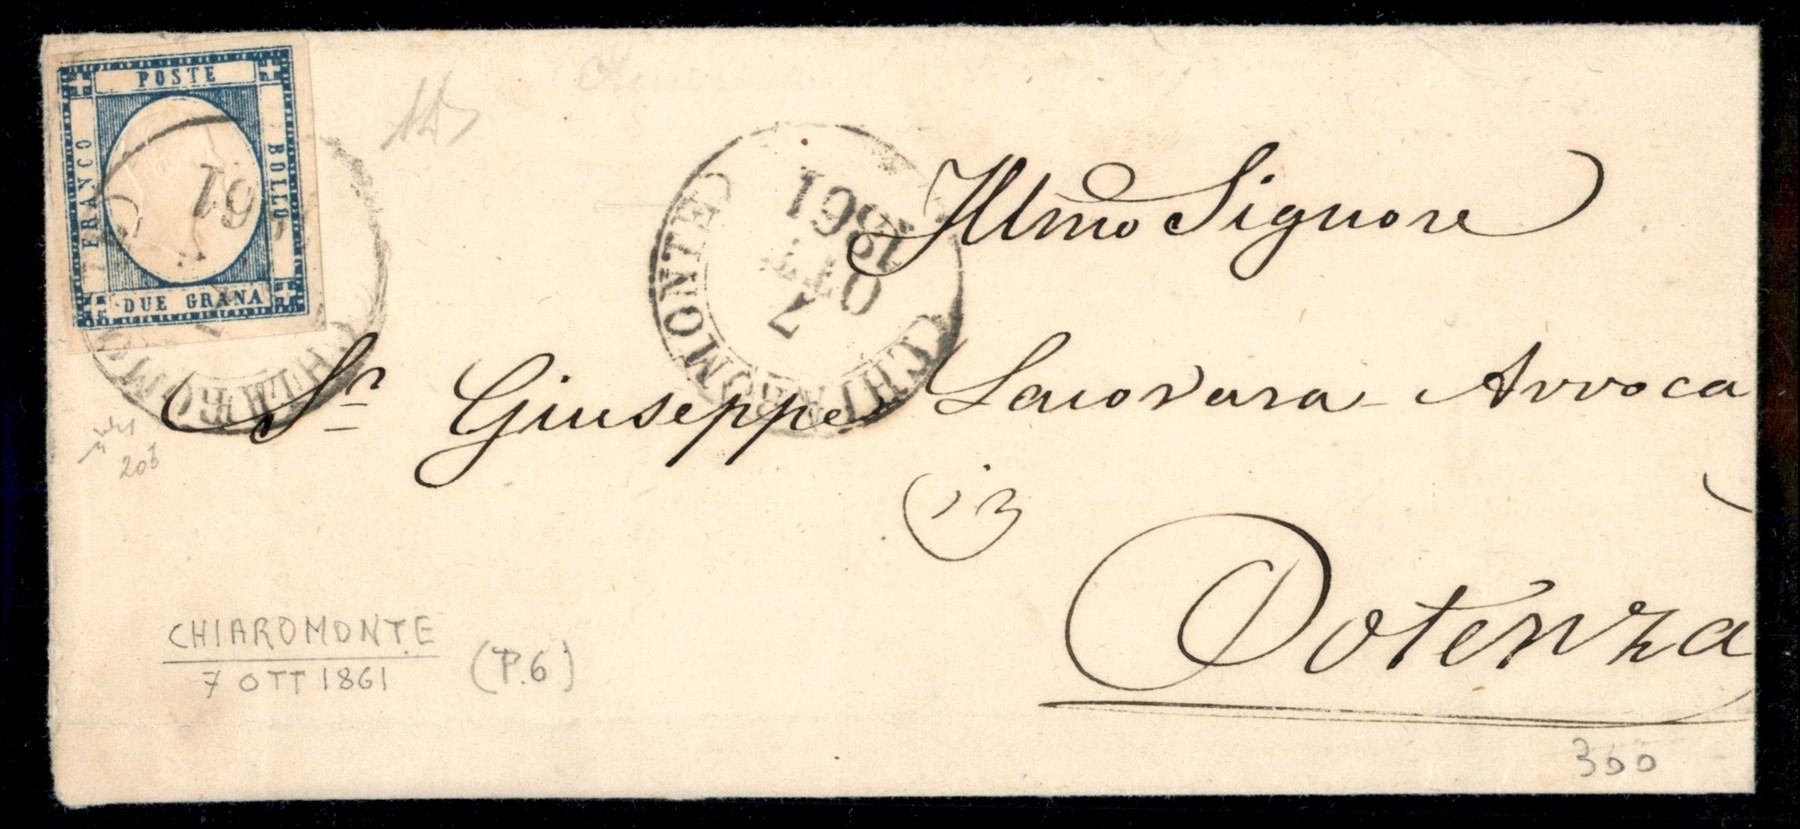 POSTE
FRANCO
BOLLO
DUE GRANA
61
CHIAROMO
CHIAROMONTE
7
OTT
1861
Illmo Signore
Sr Giuseppe Laiovara Avvoca
in
Potenza
20b
CHIAROMONTE
7 OTT 1861
(P.6)
300